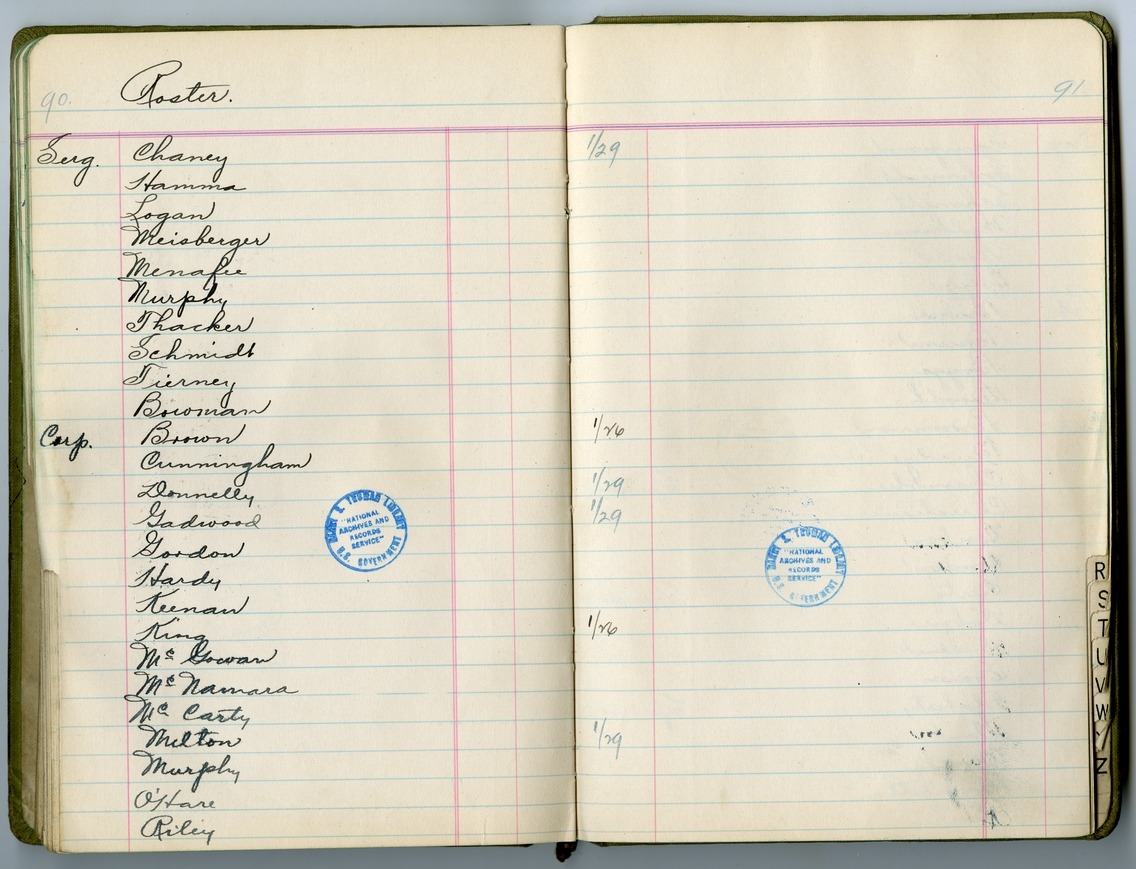 90. Roster. 91
Serg. Chaney 1/29
Hamma
Logan
Meisberger
Menafee
Murphy
Thacker
Schmidt
Tierney
Bowman
Corp. Brown 1/26
Cunningham
Donnelly 1/29
Gadwood 1/29
Gordon
Hardy
Keenan
King 1/26
Mc Gowan
Mc Namara
Mc Carty
Milton 1/29
Murphy
O'Hare
Riley
HARRY S. TRUMAN LIBRARY
"NATIONAL
ARCHIVES AND
RECORDS
SERVICE"
U.S. GOVERNMENT
HARRY S. TRUMAN LIBRARY
"NATIONAL
ARCHIVES AND
RECORDS
SERVICE"
U.S. GOVERNMENT
R
S
T
U
V
W
Y
Z